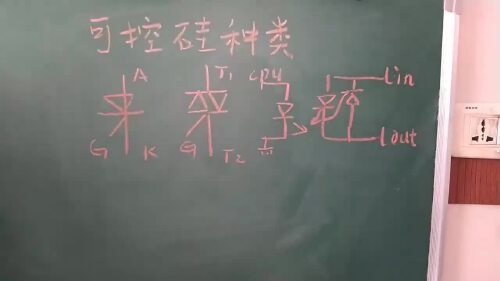 可控硅种类
A T1 cpu Lin
G K G T2 Lout